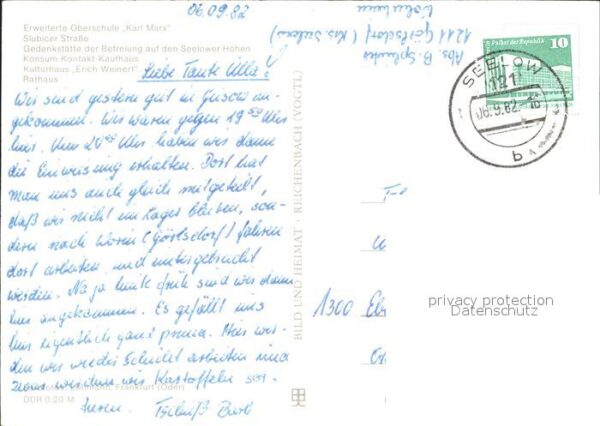 06.09.82
Erweiterte Oberschule „Karl Marx"
Slubicer Straße
Gedenkstätte der Befreiung auf den Seelower Höhen
Konsum-Kontakt-Kaufhaus
Kulturhaus „Erich Weinert"
Rathaus
Liebe Tante Ulla!
Wir sind gestern gut in Gusow an-
gekommen. Wir waren gegen 19⁵⁰ Uhr
hier. Um 20⁴⁵ Uhr haben wir dann
die Einweisung erhalten. Dort hat
man uns auch gleich mitgeteilt,
daß wir nicht im Lager bleiben, son-
dern nach Worin (Görlsdorf) fahren
dort arbeiten und untergebracht
werden. Na ja heute früh sind wir dann
hier angekommen. Es gefällt uns
hier eigentlich ganz prima. Hier wer-
den wir wieder Schicht arbeiten und
zwar werden wir Kartoffeln sor-
tieren. Tschüß
Frankfurt (Oder)
DDR 0,20 M
BILD UND HEIMAT · REICHENBACH (VOGTL)
Abs. B.
1211 Görlsdorf (Krs. Seelow)
Palast der Republik
10
SEELOW
121
06.9.82-16
b
1300
privacy protection
Datenschutz